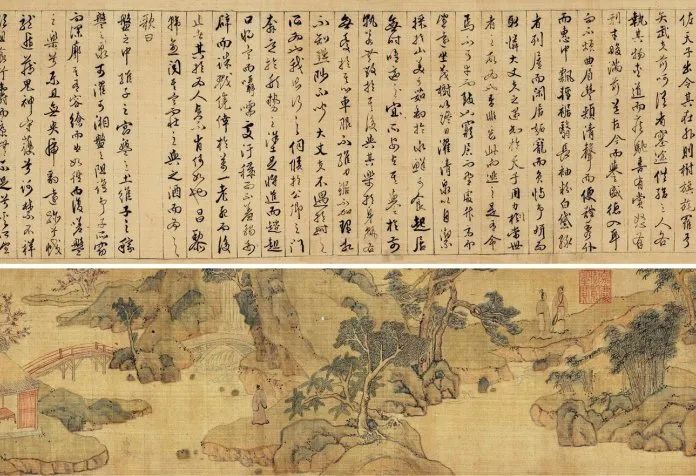 佐天子出令其在外則樹旗旄羅弓
矢武夫前呵從者塞途供給之人各
執其物夾道而疾馳喜有賞怒有
刑才畯滿前道古今而譽盛德入耳
而不煩曲眉豐頰清聲而便體秀外
而惠中飄輕裾翳長袖粉白黛綠
者列屋而閑居妬寵而負恃爭妍而
取憐大丈夫之遇知於天子用力於當世
者之所為也吾非惡此而逃之是有命
焉不可幸而致也窮居而野處升高而
望遠坐茂樹以終日濯清泉以自潔
採於山美可茹釣於水鮮可食起居
無時惟適之安與其有譽於前
孰若無毀於其後與其樂於身孰若
無憂於其心車服不維刀鋸不加理亂
不知黜陟不聞大丈夫不遇於時之
所為也我則行之伺候於公卿之門
奔走於形勢之途足將進而趑趄
口將言而囁嚅處汙穢而不羞觸刑
辟而誅戮僥倖於萬一老死而後
止者其於為人賢不肖何如也昌黎
韓愈聞其言而壯之與之酒而為之
歌曰
盤之中維子之宮盤之土維子之稼
盤之泉可濯可湘盤之阻誰爭子所窈
而深廓其有容繚而曲如往而復嗟盤
之樂兮樂且無央虎豹遠跡兮蛟
龍遁藏鬼神守護兮呵禁不祥
飲且食兮壽而康無不足兮奚所望